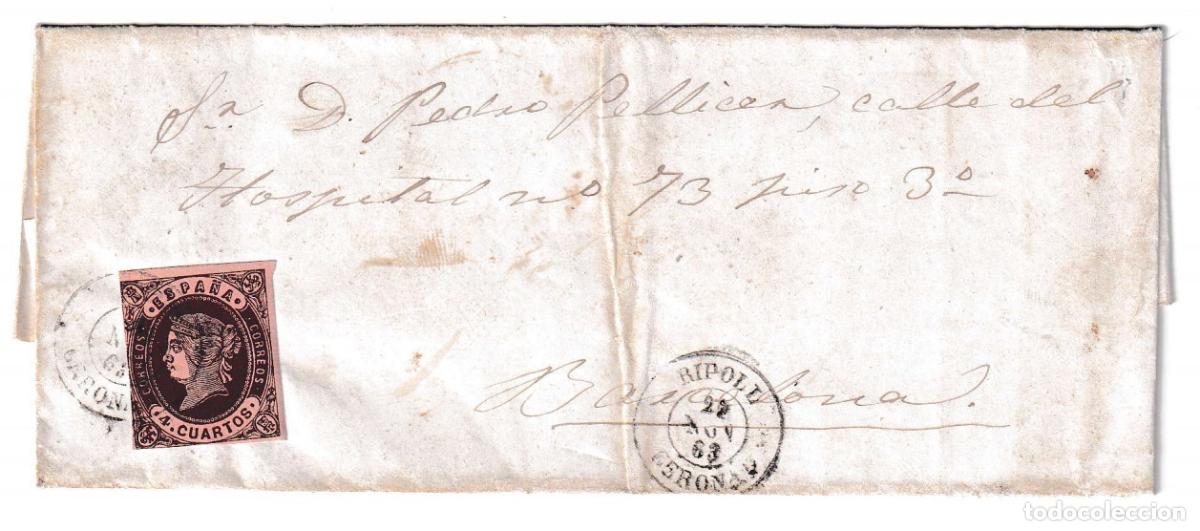 Sr. D. Pedro Pellicer, calle del
Hospital nº 73 piso 3º
ESPAÑA
CORREOS
CORREOS
4. CUARTOS
63
GERONA
Barcelona.
RIPOLL
22
NOV
63
GERONA
todocoleccion